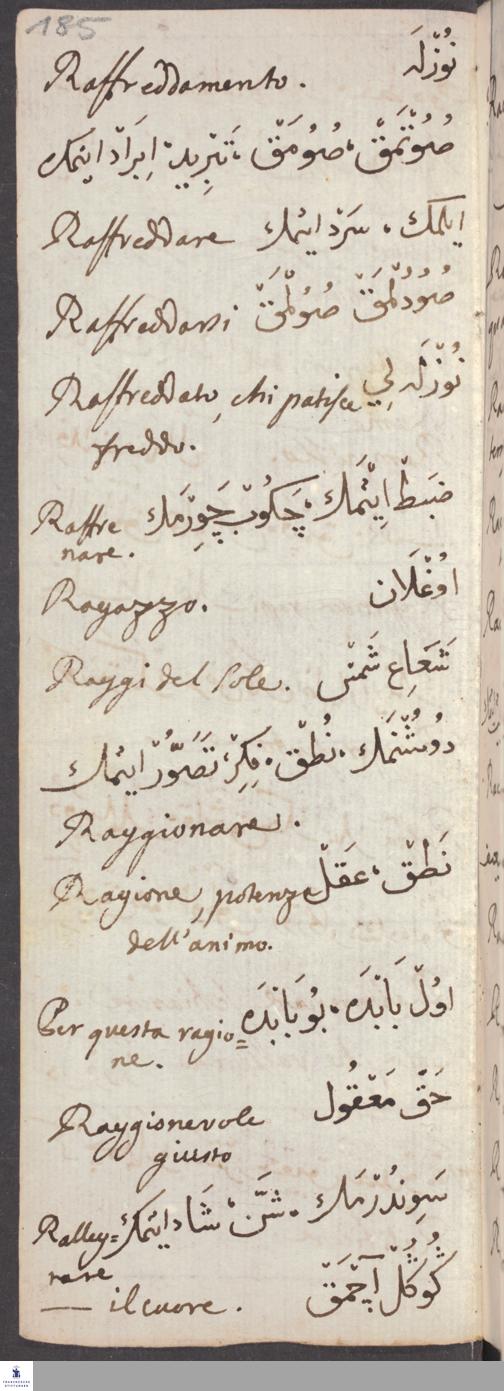 185
Raffreddamento. نُوْزْلَه
صُوُتْمَقْ، صُوُمَقْ، تَبْرِيدْ، اِبْرَادْ ايتمك
Raffreddare ايلمك، سَرْدْ ايتمك
Raffreddarsi صُوُدُلْمَقْ صُوُلْمَقْ
Raffreddato, chi patisce نُوْزْلَه لِي
freddo.
Raffre ضَبطْ اِيتْمَكْ، چَكُوبْ چَوِرْمَك
nare.
Ragazzo. اوُغْلَان
Raygi del Sole. شَعَاعِ شَمْسْ
دُوشُنْمَك، نُطْقْ، فِكِرْ، تَصَوُّرْ ايتمك
Raygionare.
Ragione, potenza نَطْقْ، عَقَلْ
dell'animo.
Per questa ragio= اوُلْ بَابْدَه، بُو بَابْدَه
ne.
Raygionevole حَقْ مَعْقُول
giusto
Ralleg= سَوِنْدُرْمَك، شَنْ، شَاد ايتمك
rare
— il cuore. كُوكُلْ آچْمَقْ